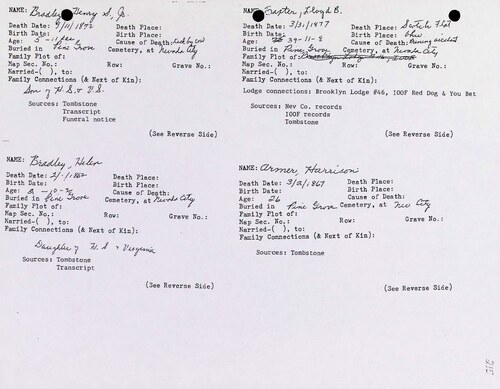 NAME: Bradley, Henry S., Jr.
Death Date: 9/11/1872 Death Place:
Birth Date: Birth Place:
Age: 5 - 11 Cause of Death:
Buried in Pine Grove Cemetery, at Nevada City
Family Plot of:
Map Sec. No.: Row: Grave No.:
Married-( ), to:
Family Connections (& Next of Kin):
Son of H.S. & V.
Sources: Tombstone
Transcript
Funeral notice
(See Reverse Side)
NAME: Baxter, Lloyd B.
Death Date: 3/31/1877 Death Place: Scotch Flat
Birth Date: Birth Place: Ohio
Age: 39-11-2 Cause of Death: Mining accident
Buried in Pine Grove Cemetery, at Nevada City
Family Plot of:
Map Sec. No.: Row: Grave No.:
Married-( ), to:
Family Connections (& Next of Kin):
Lodge connections: Brooklyn Lodge #46, IOOF Red Dog & You Bet
Sources: Nev Co. records
IOOF records
Tombstone
(See Reverse Side)
NAME: Bradley, Helen
Death Date: 2/-/1862 Death Place:
Birth Date: Birth Place:
Age: Cause of Death:
Buried in Pine Grove Cemetery, at Nevada City
Family Plot of:
Map Sec. No.: Row: Grave No.:
Married-( ), to:
Family Connections (& Next of Kin):
Daughter of H.S. & Virginia
Sources: Tombstone
Transcript
(See Reverse Side)
NAME: Armer, Harrison
Death Date: 3/2/1867 Death Place:
Birth Date: Birth Place:
Age: 26 Cause of Death:
Buried in Pine Grove Cemetery, at Nev City
Family Plot of:
Map Sec. No.: Row: Grave No.:
Married-( ), to:
Family Connections (& Next of Kin):
Sources: Tombstone
(See Reverse Side)